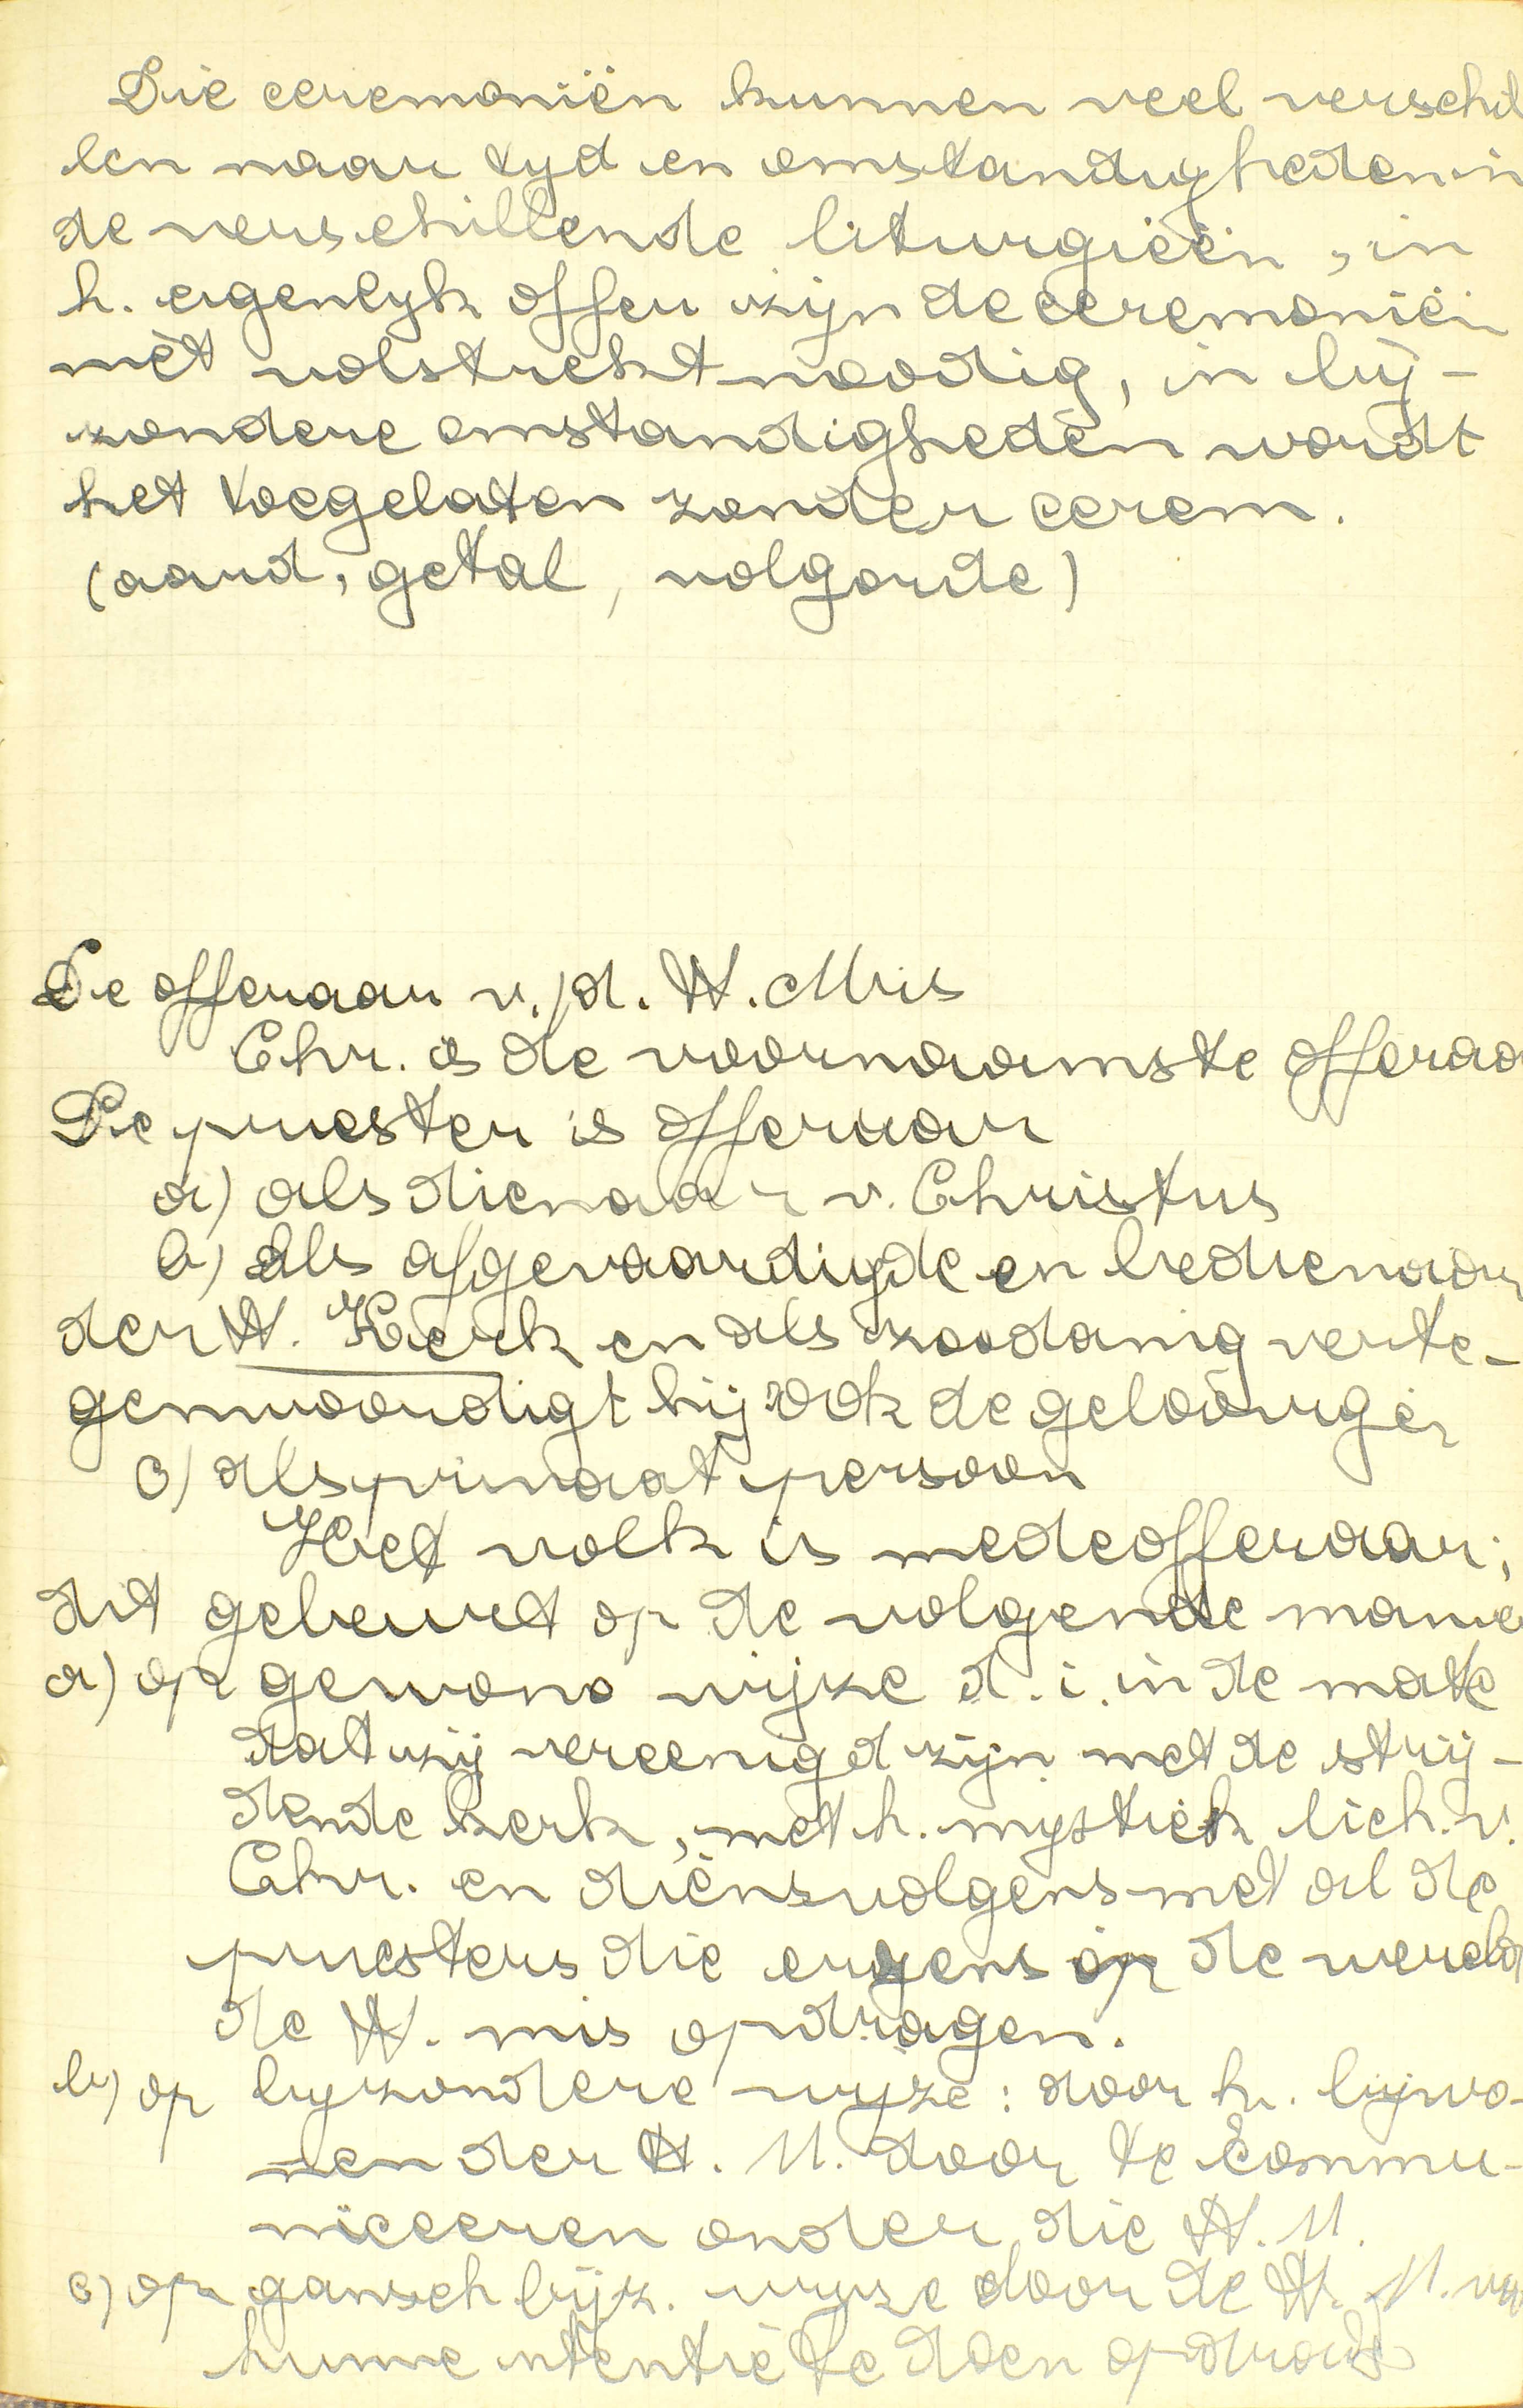 Die ceremoniën kunnen veel verschil
len naar tyd en omstandigheden in
de verschillende liturgieën, in
h. eigenlyk offer zijn de ceremoniën
niet volstrekt noodig, in bij-
zondere omstandigheden wordt
het toegelaten zonder cerem.
(aard, getal, volgorde)
De offeraar v./d. H. Mis
Chr. is de voornaamste offeraar
De priester is offeraar
a) als dienaar v. Christus
b) als afgevaardigde en bedienaar
der H. Kerk en als zoodanig verte-
genwoordigt hij ook de geloovigen
c) als privaat persoon
Het volk is medeofferaar;
dit gebeurt op de volgende manier
a) op gewone wijze d.i. in de mate
dat zij vereenigd zijn met de strij-
dende kerk, met h. mystiek lich. v.
Chr. en diensvolgens met al de
priesters die ergens op de wereld
de H. mis opdragen.
b) op byzondere wyze: door h. bijwo-
nen der H. M. door te commu-
niceeren onder die H. M.
c) op gansch bijz. wyze door de H. M. voor
hunne intentie te doen opdragen